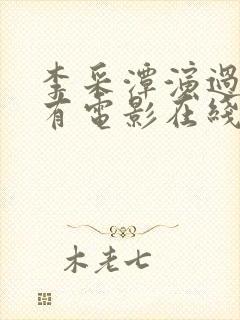 李采潭演過
有電影在綫
木老七